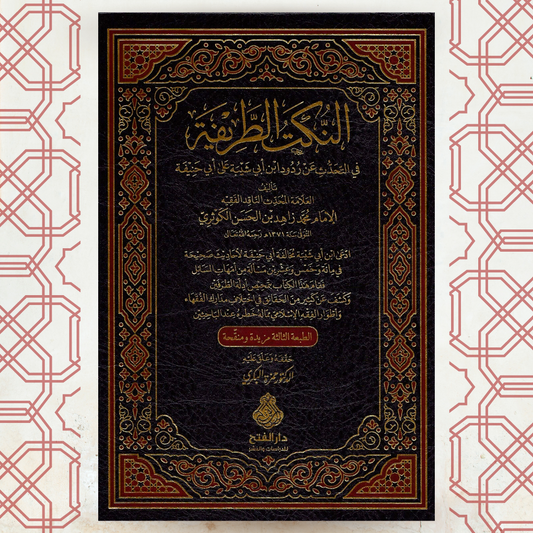 النُّكَتُ الطَّرِيفَة
في التَحَدُّثِ عَنْ رُدُودِ ابْنِ أَبِي شَيْبَة عَلَى أَبِي حَنِيفَة
تَأليفُ
العَلّامَة المُحَدِّث النَّاقِد الفَقِيْه
الإمَام مُحَمَّد زَاهِد بْن الحَسَن الكَوْثَرِيّ
المُتَوَفَّى سَنَة ١٣٧١هـ رَحِمَهُ اللهُ تَعَالَى
ادّعى ابن أبي شيبة مخالفة أبي حنيفة لأحاديث صحيحة
في مائة وخمس وعشرين مسألة من أمهات المسائل
فقام هذا الكتاب بتمحيص أدلة الطرفين
وكشف عن كثير من الحقائق في اختلاف مدارك الفقهاء
وأطوار الفقه الإسلامي مما له خطره عند الباحثين
الطبعة الثالثة مزيدة ومنقّحة
حققه وعلق عليه
الدكتور حمزة البكري
دار الفتح
للدراسات والنشر